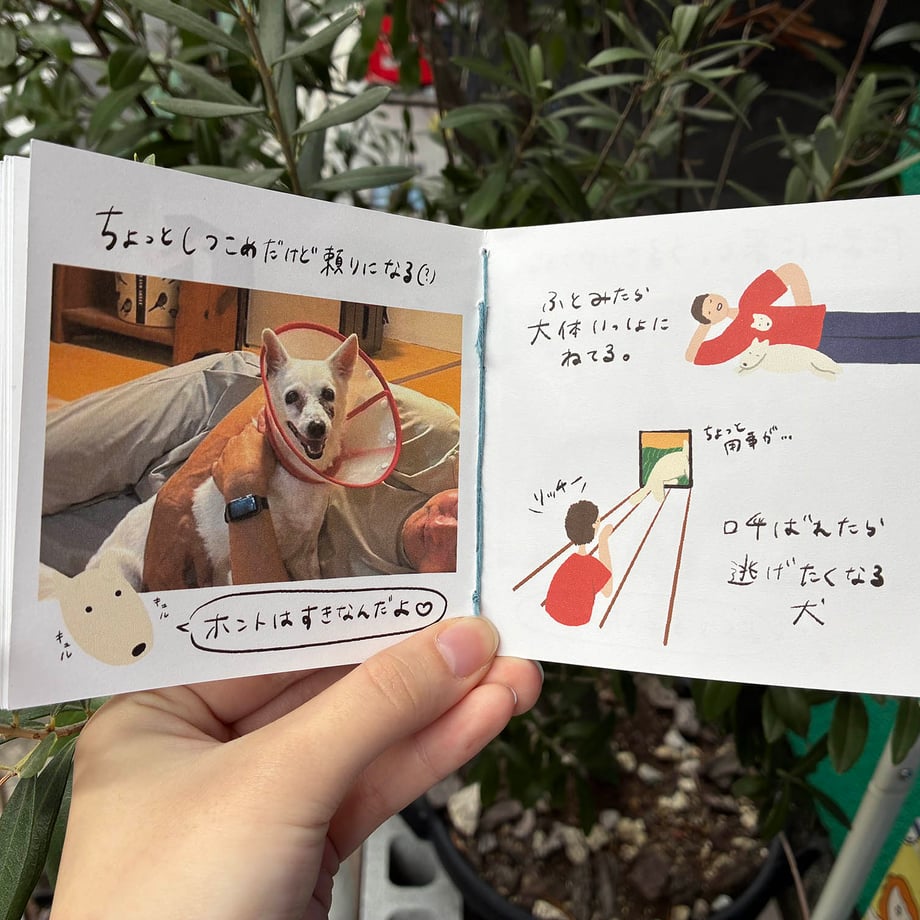 ちょっとしつこめだけど頼りになる(?)
キュル
キュル
ホントはすきなんだよ♡
ふとみたら
大体いっしょに
ねてる。
ちょっと
用事が…
リッチー
呼ばれたら
逃げたくなる
犬